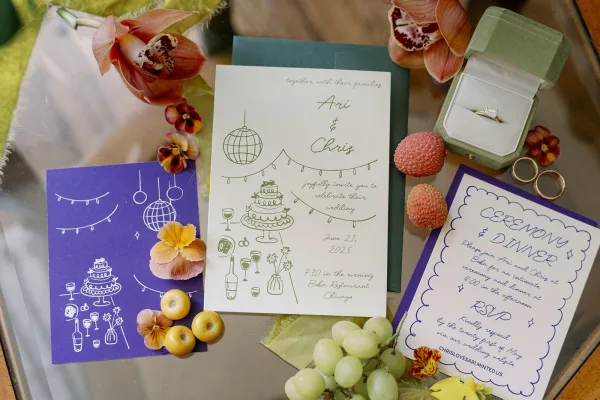 together with their families
Ari
&
Chris
joyfully invite you to
celebrate their
wedding
June 21,
2025
7:30 in the evening
Boka Restaurant
Chicago
CEREMONY
& DINNER
Please join Ari and Chris at
Boka for an intimate
ceremony and dinner at
5:00 in the afternoon
RSVP
Kindly respond
by the twenty first of May
via our wedding website
CHRISLOVESARI.MINTED.US